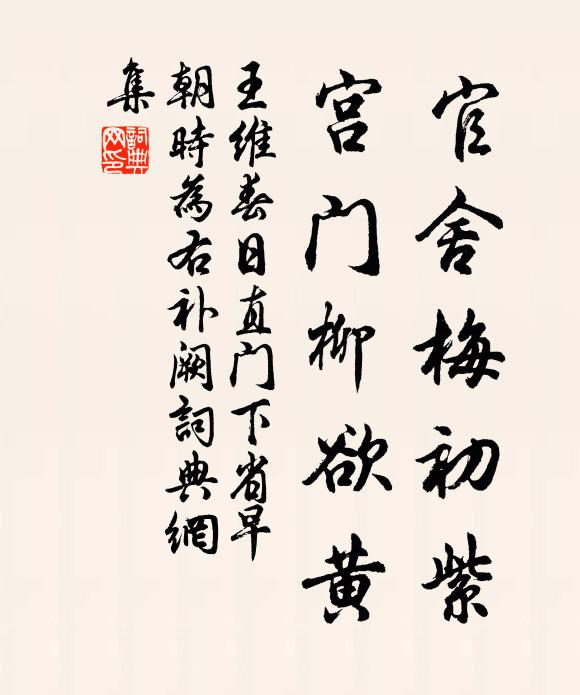 官舍梅初紫
宫门柳欲黄
王维春日直门下省早
朝時為右补阙詞典網
集
詞典网印